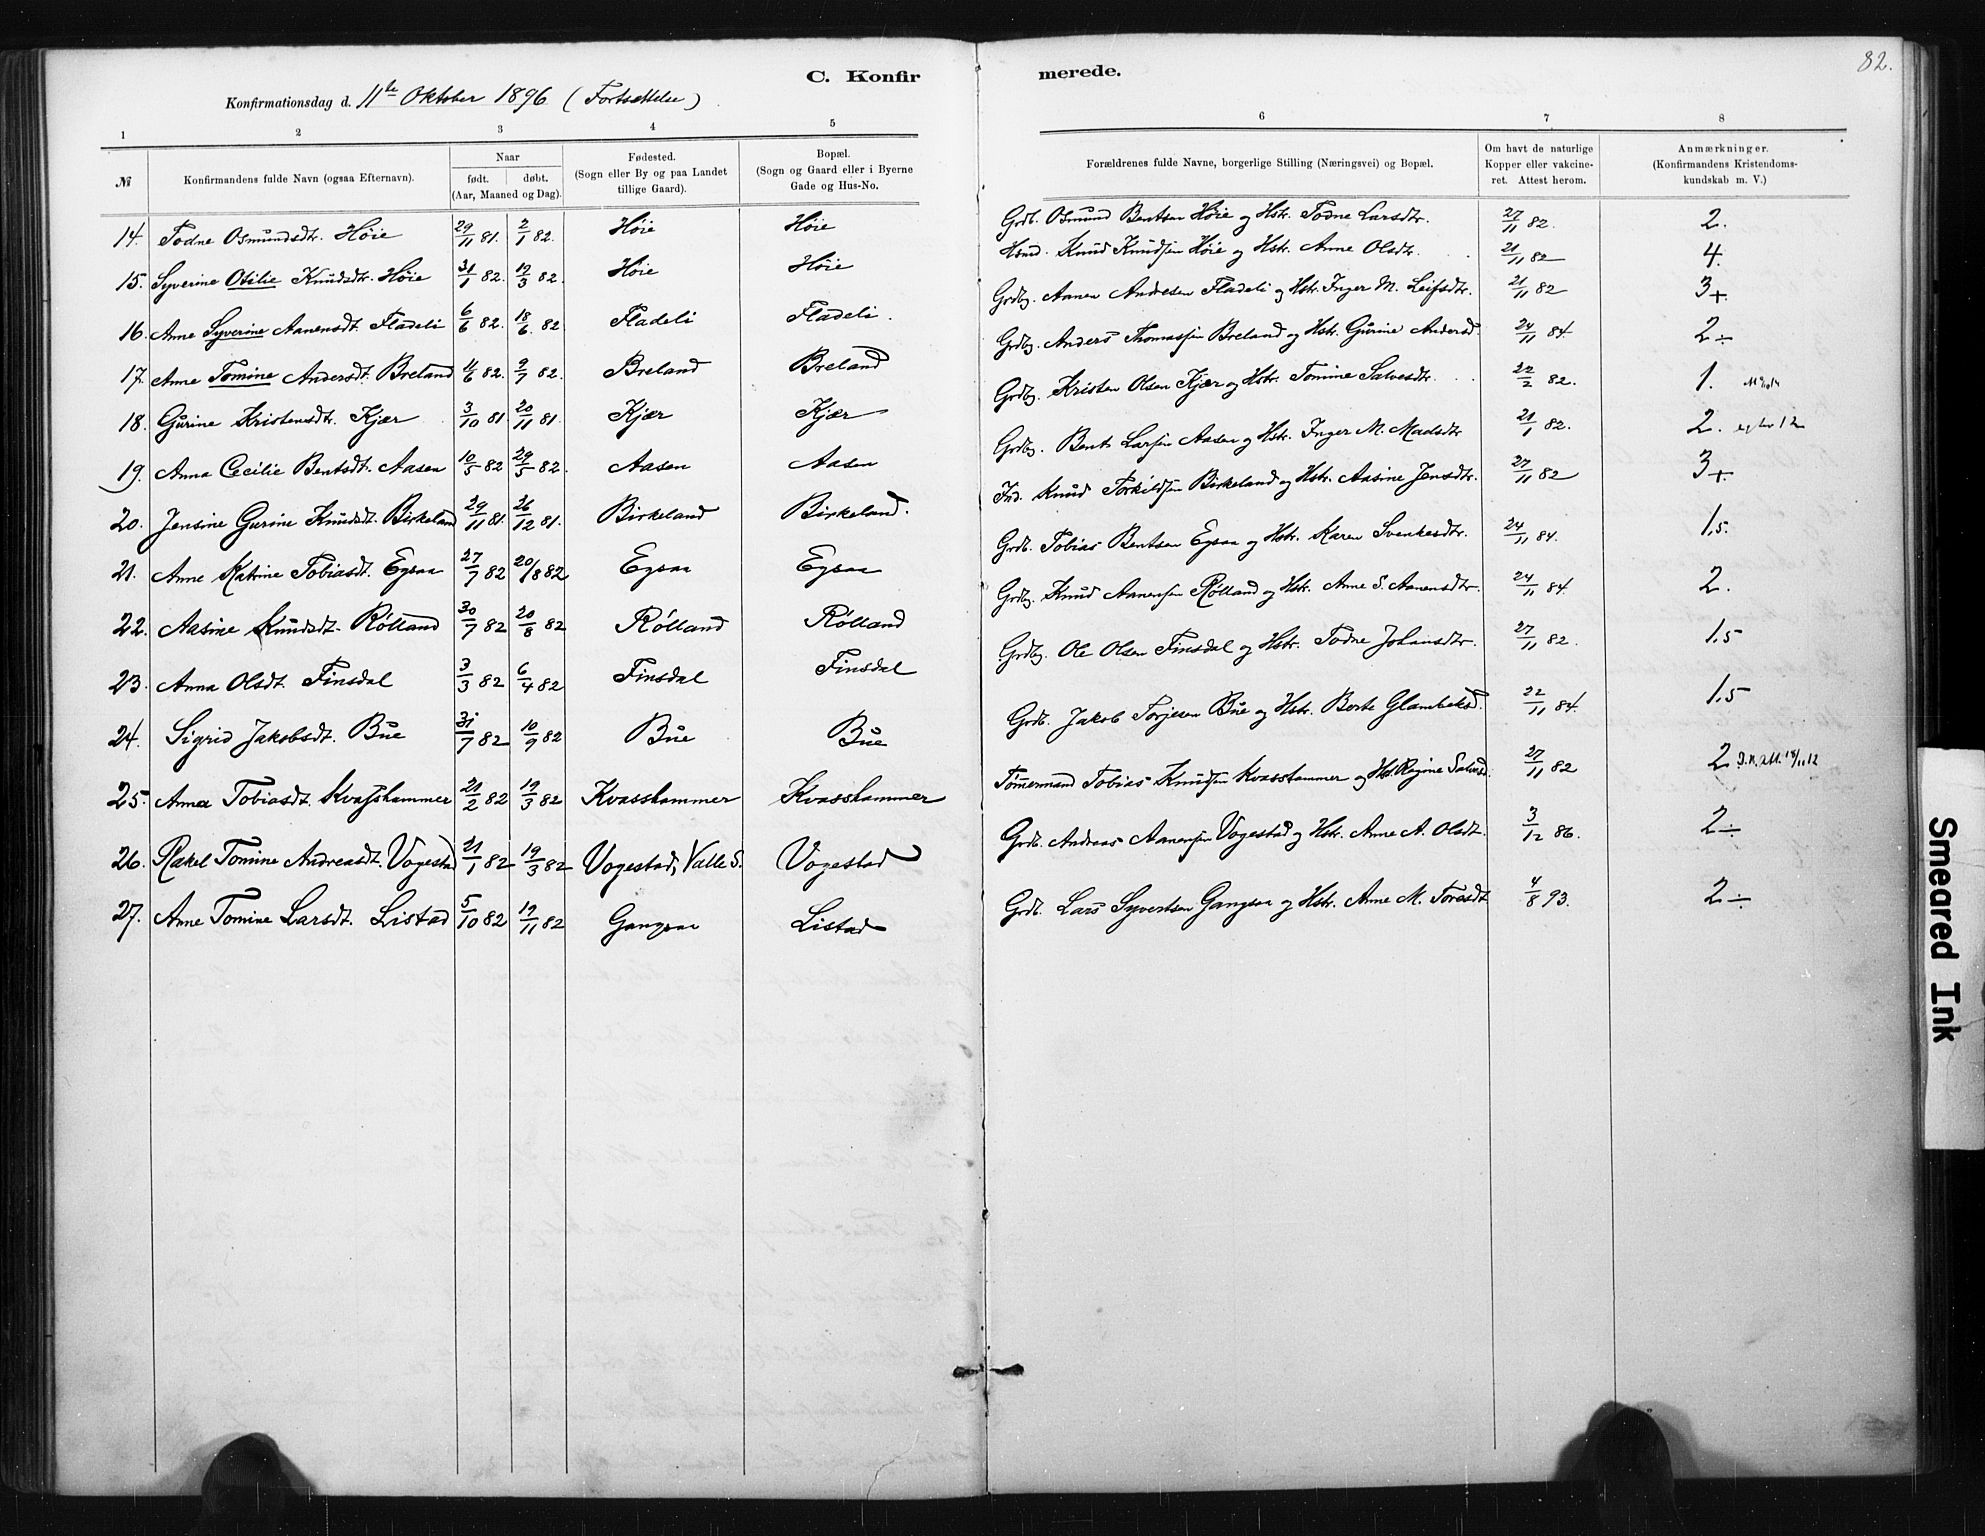 82.
C. Konfirmerede.
Konfirmationsdag d. 11te Oktober 1896 (Fortsættelse)
1 2 3 4 5 6 7 8
№ Konfirmandens fulde Navn (ogsaa Efternavn). Naar født. døbt. (Aar, Maaned og Dag). Fødested. (Sogn eller By og paa Landet tillige Gaard). Bopæl. (Sogn og Gaard eller i Byerne Gade og Hus-No. Forældrenes fulde Navne, borgerlige Stilling (Næringsvei) og Bopæl. Om havt de naturlige Kopper eller vakcineret. Attest herom. Anmærkninger. (Konfirmandens Kristendomskundskab m. V.)
14. Todne Osmundsdtr. Höie 29/11 81. 2/1 82. Höie Höie Grdb. Osmund Bentsen Höie og Hstr. Todne Larsdtr. 27/11 82. 2.
15. Syverine Otilie Knudsdtr. Höie 31/1 82. 19/3 82. Höie Höie Hsmd. Knud Knudsen Höie og Hstr. Anne Olsdtr. 21/11 82 4.
16. Anne Syverine Aanensdt. Fladeli 6/6 82. 18/6 82. Fladeli Fladeli. Grdbg. Aanen Andresen Fladeli og Hstr. Inger M. Leifsdtr. 21/11 82 3+
17. Anne Tomine Andersdt. Breland 11/6 82. 9/7 82. Breland Breland Grdbg. Anders Thomassen Breland og Hstr. Gurine Andersd. 24/11 84. 2÷
18. Gurine Kristensdtr. Kjær 3/10 81 20/11 81. Kjær Kjær Grdbg. Kristen Olsen Kjær og Hstr. Tomine Salvesdtr. 22/2 82. 1.
19. Anna Cecilie Bentsdt. Aasen 10/5 82 29/5 82. Aasen Aasen Grdbg. Bent Larsen Aasen og Hstr. Inger M. Madsdtr 21/1 82. 2.
20. Jensine Gurine Knudsdt. Birkeland 29/11 81. 26/12 81. Birkeland Birkeland. Ind. Knud Torkildsen Birkeland og Hstr. Aasine Jensdtr. 27/11 82 3+
21. Anne Katrine Tobiasdt. Egsaa 27/7 82 20/8 82 Egsaa Egsaa Grdb. Tobias Bentsen Egsaa og Hstr. Karen Svenkesdtr. 24/11 84. 1.5
22. Aasine Knudsdt. Rölland 30/7 82 20/8 82 Rölland Rölland Grdbg. Knud Aanensen Rölland og Hstr. Anne S. Aanensdtr. 24/11 84. 2.
23. Anna Olsdt. Finsdal 3/3 82 6/4 82 Finsdal Finsdal Grdbg. Ole Olsen Finsdal og Hstr. Todne Johansdtr. 27/11 82. 1.5
24. Sigrid Jakobsdt. Bue 31/7 82 10/9 82 Bue Bue Grdb. Jakob Torjesen Bue og Hstr. Berte Glambeksd. 22/11 84. 1.5
25. Anna Tobiasdt. Kvasshammer 21/2 82 19/3 82 Kvasshammer Kvasshammer Tömmermand Tobias Knudsen Kvasshammer og Hst. Regine Salvesd. 27/11 82 2
26. Rakel Tomine Andreasdt. Vogestad 21/1 82 19/3 82 Vogestad, Valle S. Vogestad Grdb. Andreas Aanensen Vogestad og Hstr. Anne A. Olsdt. 3/12 86. 2÷
27. Anne Tomine Larsdt. Listad 5/10 82 19/11 82 Gangsaa Listad Grdb. Lars Syvertsen Gangsaa og Hstr. Anne M. Toresdt 4/8 93. 2÷
Smeared Ink